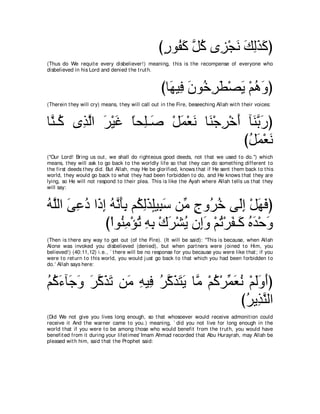 (كَذَلِكَ نَجْزِى كُلَّ كَفُورٍ)
(Thus do We requite every disbeliever!) meaning, this is the recompense of everyone who
disbelieved in his Lord and denied the truth.
(وَهُمْ يَصْطَرِخُونَ فِيهَا)
(Therein they will cry) means, they will call out in the Fire, beseeching Allah with their voices:
(رَبَّنَآ أَخْرِجْنَا نَعْمَلْ صَـلِحاً غَيْرَ الَّذِى كُـنَّا
نَعْمَلُ)
("Our Lord! Bring us out, we shall do righteous good deeds, not that we used to do.") which
means, they will ask to go back to the worldly life so that they can do something different to
the first deeds they did. But Allah, may He be glorified, knows that if He sent them back to this
world, they would go back to what they had been forbidden to do, and He knows that they are
lying, so He will not respond to their plea. This is like the Ayah where Allah tells us that they
will say:
(فَهَلْ إِلَى خُرُوجٍ مِّن سَبِيلٍذَلِكُم بِأَنَّهُ إِذَا دُعِىَ اللَّهُ
وَحْدَهُ كَـفَرْتُمْ وَإِن يُشْرَكْ بِهِ تُؤْمِنُواْ)
(Then is there any way to get out (of the Fire). (It will be said): "This is because, when Allah
Alone was invoked you disbelieved (denied), but when partners were joined to Him, you
believed!) (40:11,12) i.e., `there will be no response for you because you were like that; if you
were to return to this world, you would just go back to that which you had been forbidden to
do.' Allah says here:
(أَوَلَمْ نُعَمِّرْكُمْ مَّا يَتَذَكَّرُ فِيهِ مَن تَذَكَّرَ وَجَآءَكُمُ
النَّذِيرُ)
(Did We not give you lives long enough, so that whosoever would receive admonition could
receive it And the warner came to you.) meaning, `did you not live for long enough in the
world that if you were to be among those who would benefit from the truth, you would have
benefited from it during your lifetimes' Imam Ahmad recorded that Abu Hurayrah, may Allah be
pleased with him, said that the Prophet said: